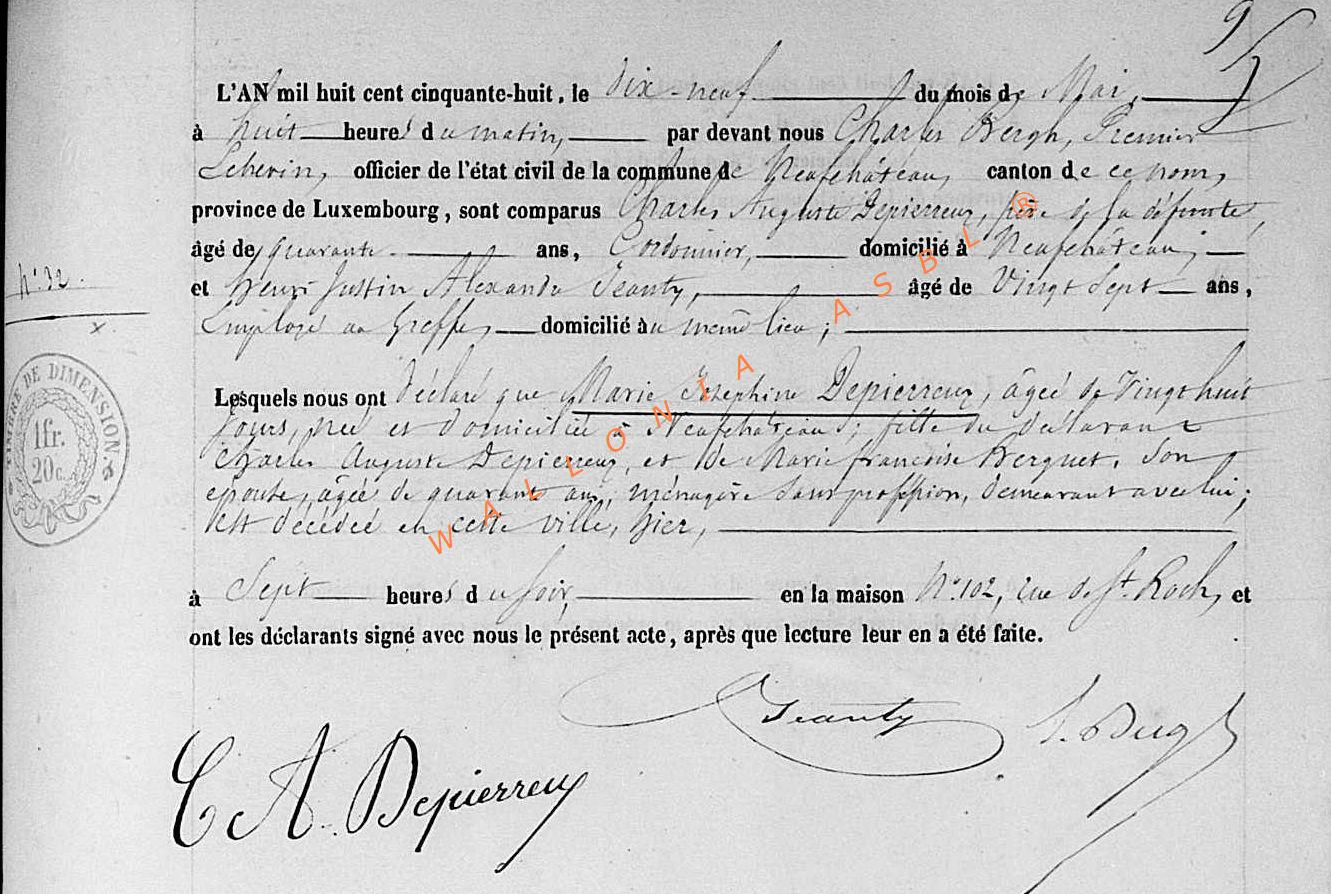 L'AN mil huit cent cinquante-huit, le dix-neuf du mois de Mai,
à huit heures du matin, par devant nous Charles Bergh, Premier
Echevin, officier de l'état civil de la commune de Neufchâteau, canton de ce nom,
province de Luxembourg, sont comparus Charles Auguste Depierreux, père de la défunte,
âgé de quarante ans, Cordonnier, domicilié à Neufchâteau,
N° 32.
et henri Justin Alexandre Jeanty, âgé de Vingt Sept ans,
Employé au Greffe, domicilié au même lieu;
Lesquels nous ont déclaré que Marie Josephine Depierreux, âgée de Vingt huit
jours, née et domiciliée à Neufchâteau; fille du déclarant
Charles Auguste Depierreux, et de Marie françoise Berguet, Son
épouse, âgée de quarante ans, ménagère Sans profession, demeurant avec lui;
est décédée en cette ville, hier,
à Sept heures du soir, en la maison N° 102, rue de St. Roch, et
ont les déclarants signé avec nous le présent acte, après que lecture leur en a été faite.
Jeanty
C A Depierreux
TIMBRE DE DIMENSION
1fr.
20c.
WALLONIA ASBL ®